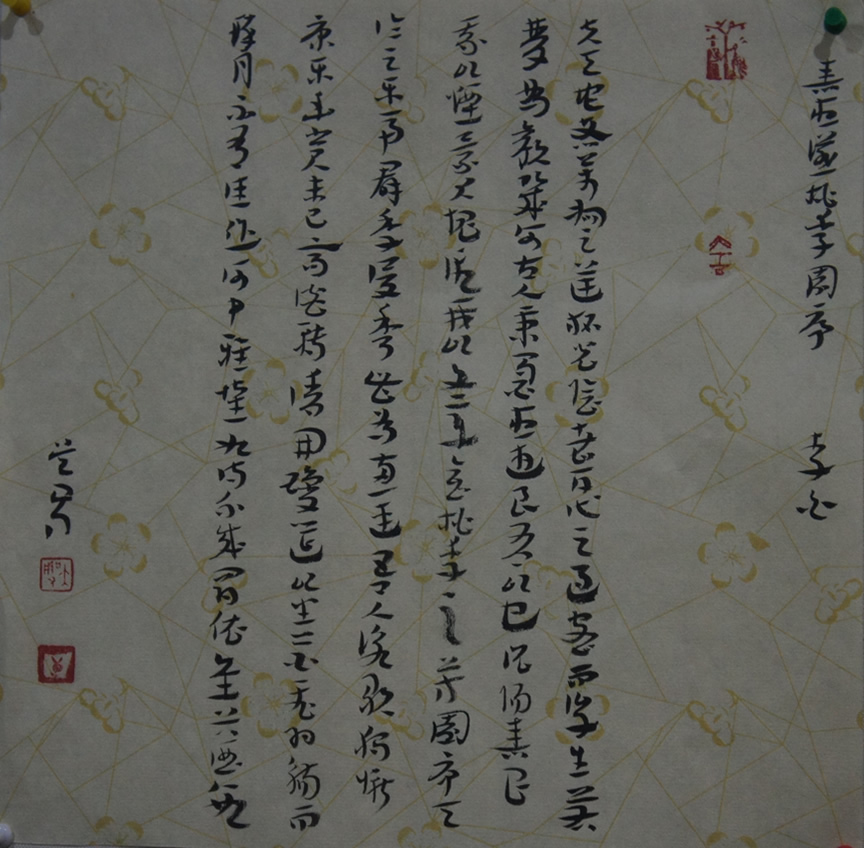 春夜宴桃李園序 李白
夫天地者萬物之逆旅光陰者百代之過客而浮生若
夢為歡幾何古人秉燭夜遊良有以也況陽春召
我以煙景大塊假我以文章會桃李之芳園序天
倫之樂事群季俊秀皆為惠連吾人詠歌獨慚
康樂幽賞未已高談轉清開瓊筵以坐花飛羽觴而
醉月不有佳作何伸雅懷如詩不成罰依金谷酒數